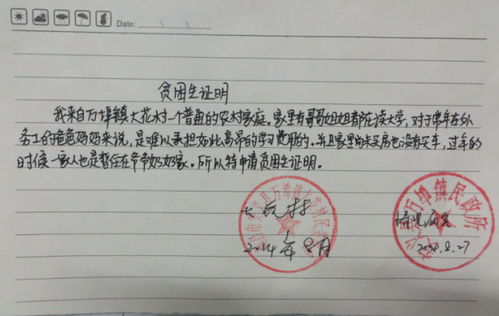 Date:
贫困生证明
我来自万埠镇大花村一个普通的农村家庭。家里有哥哥姐姐都在读大学，对于常年在外
务工的爸爸妈妈来说，是难以承担如此高昂的学习费用的。并且家里尚未买房也没有买车，过年的
时候一家人也是暂住在爷爷奶奶家。所以特申请贫困生证明。
情况属实
2014年8月
2014.8.27
万埠镇民政所